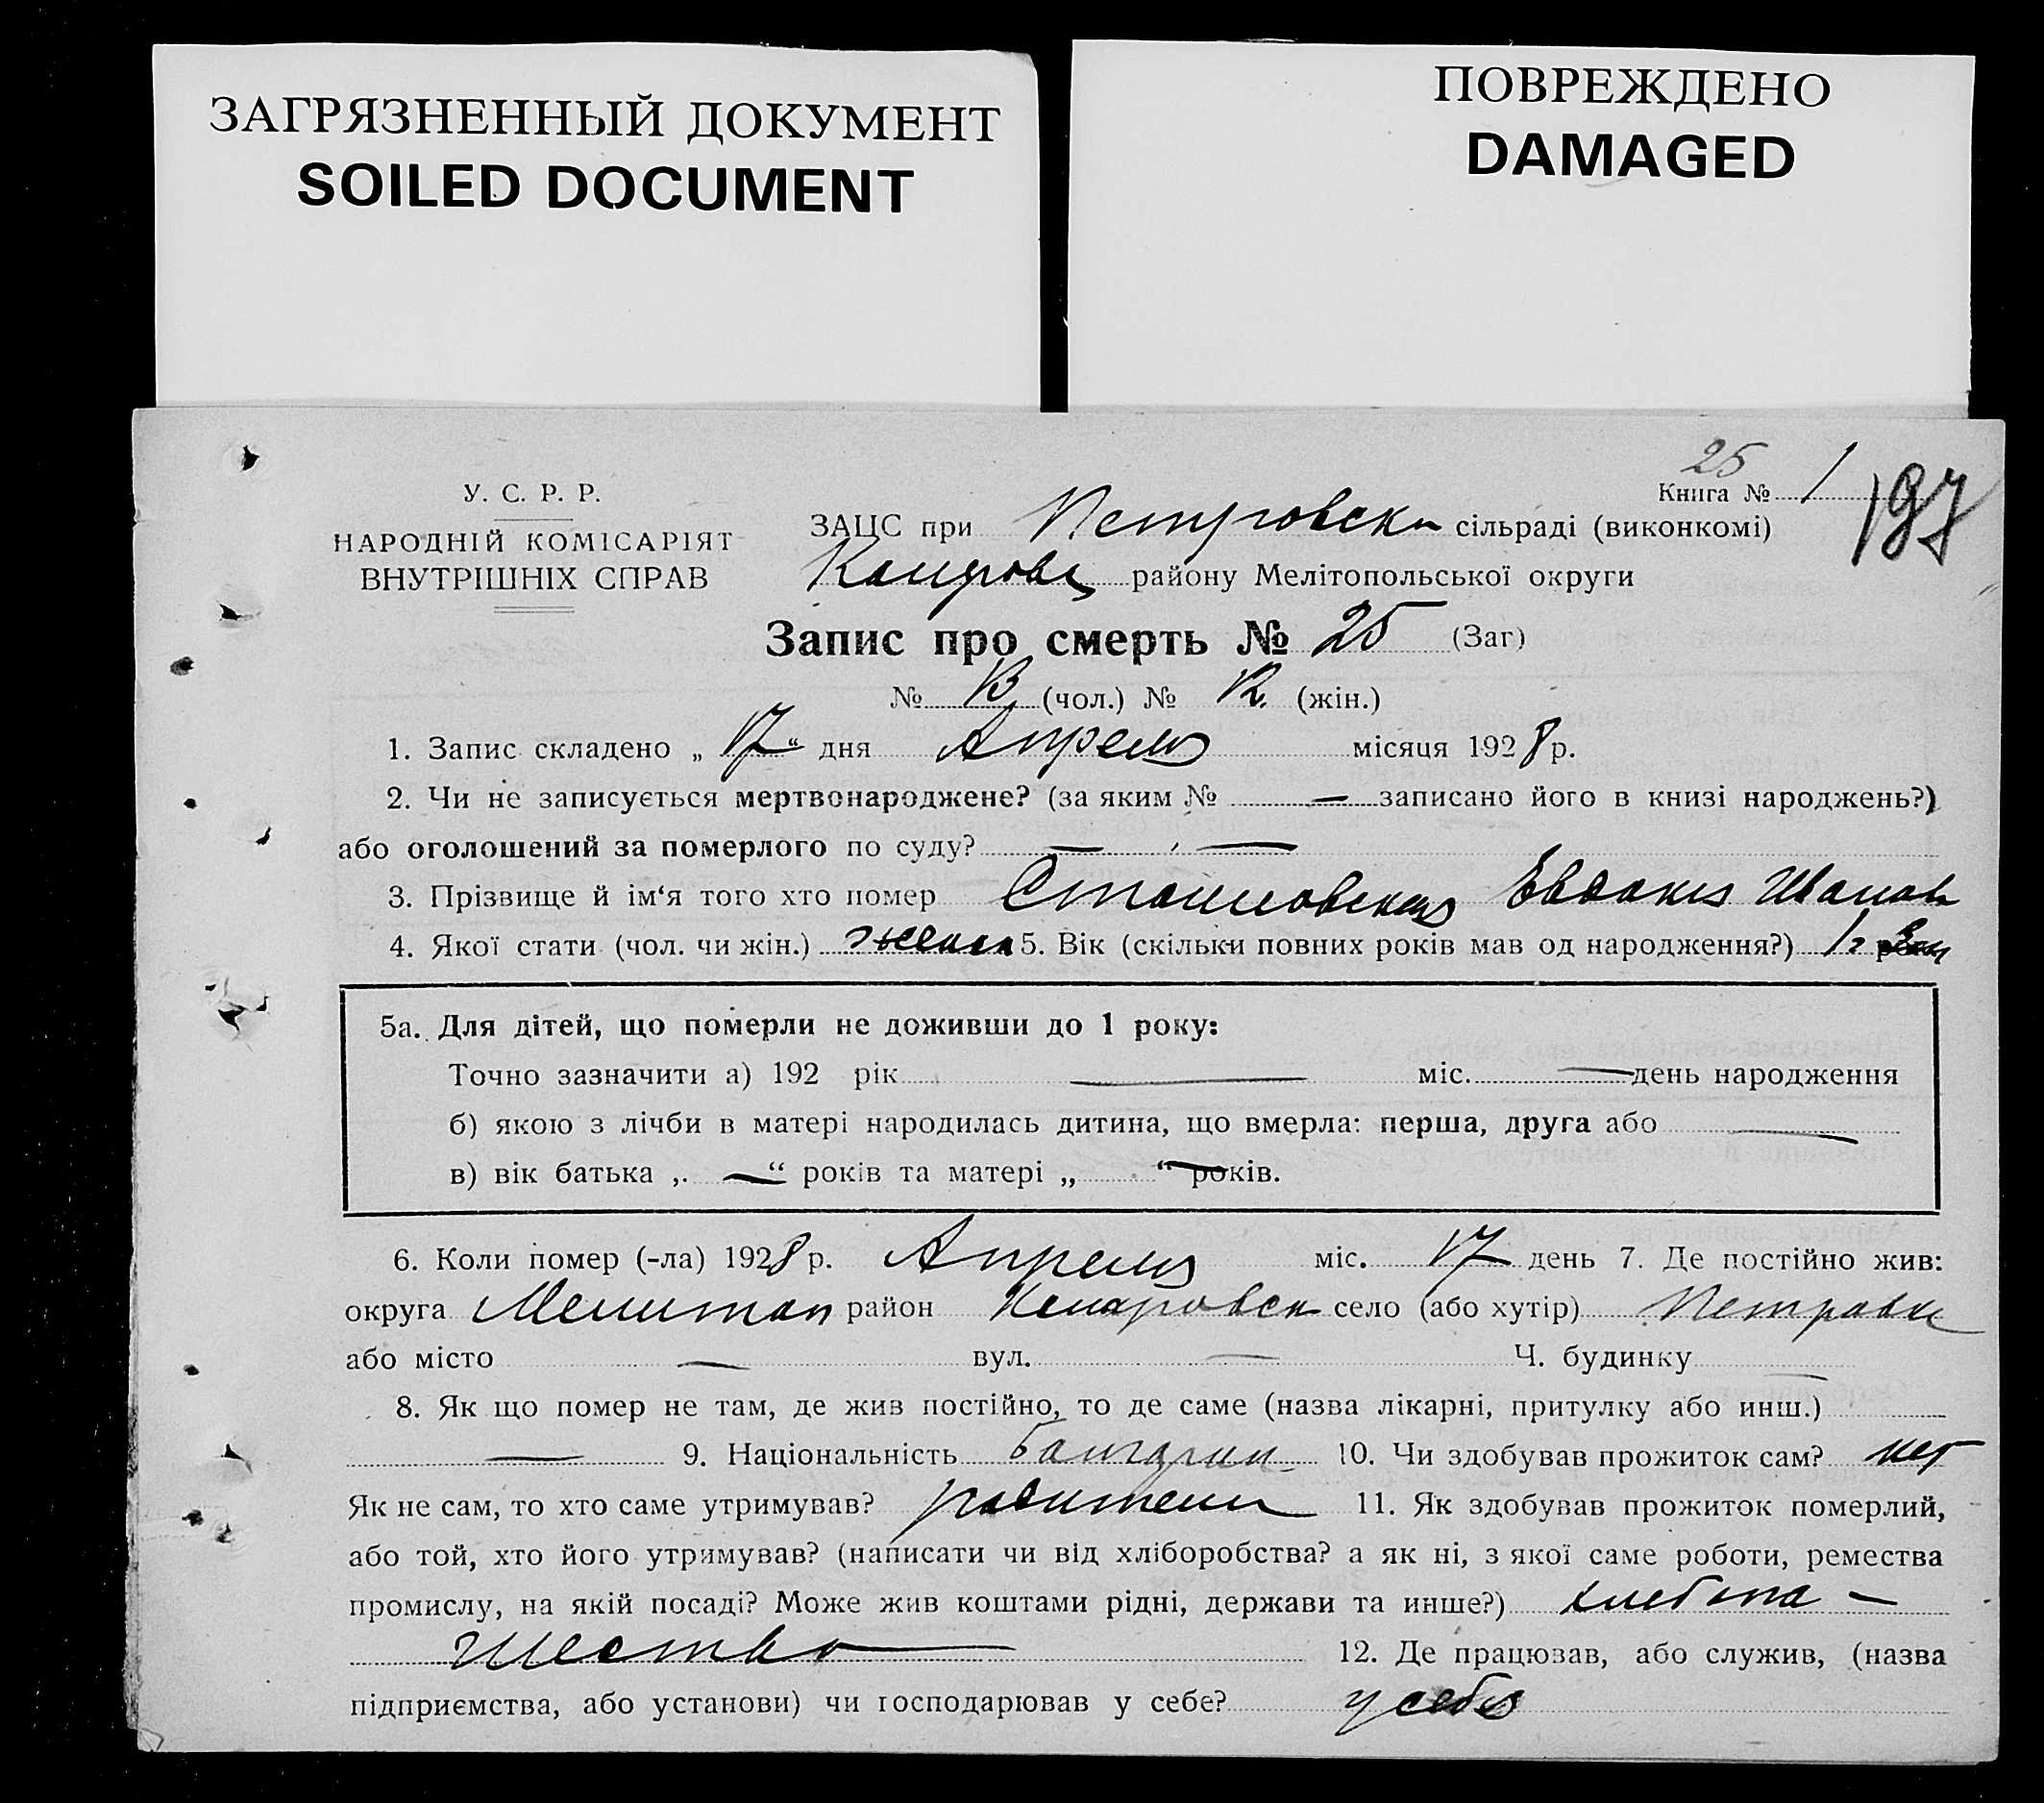 ЗАГРЯЗНЕННЫЙ ДОКУМЕНТ
SOILED DOCUMENT
ПОВРЕЖДЕНО
DAMAGED
25
Книга № 1
197
У. С. Р. Р.
НАРОДНІЙ КОМІСАРІЯТ
ВНУТРІШНІХ СПРАВ
ЗАЦС при Петровск сільраді (виконкомі)
району Мелітопольської округи
Запис про смерть № 25 (Заг)
№ 13 (чол.) № 12. (жін.)
1. Запис складено „ 17 “ дня Апреля місяця 1928 р.
2. Чи не записується мертвонароджене? (за яким № — записано його в книзі народжень?)
або оголошений за померлого по суду? — —
3. Прізвище й ім‘я того хто помер Евдокия Иванов
4. Якої стати (чол. чи жін.) женск 5. Вік (скільки повних років мав од народження?) 1 г
5а. Для дітей, що померли не доживши до 1 року:
Точно зазначити а) 192 рік — міс. — день народження
б) якою з лічби в матері народилась дитина, що вмерла: перша, друга або —
в) вік батька „ — “ років та матері „ — “ років.
6. Коли помер (-ла) 1928 р. Апреля міс. 17 день 7. Де постійно жив:
округа Мелитоп район село (або хутір) Петровк
або місто — вул. — Ч. будинку —
8. Як що помер не там, де жив постійно, то де саме (назва лікарні, притулку або инш.)
— 9. Національність болгарин 10. Чи здобував прожиток сам? нет
Як не сам, то хто саме утримував? родители 11. Як здобував прожиток померлий,
або той, хто його утримував? (написати чи від хліборобства? а як ні, з якої саме роботи, ремества
промислу, на якій посаді? Може жив коштами рідні, держави та инше?) хлебопа —
шество 12. Де працював, або служив, (назва
підприємства, або установи) чи господарював у себе? у себя